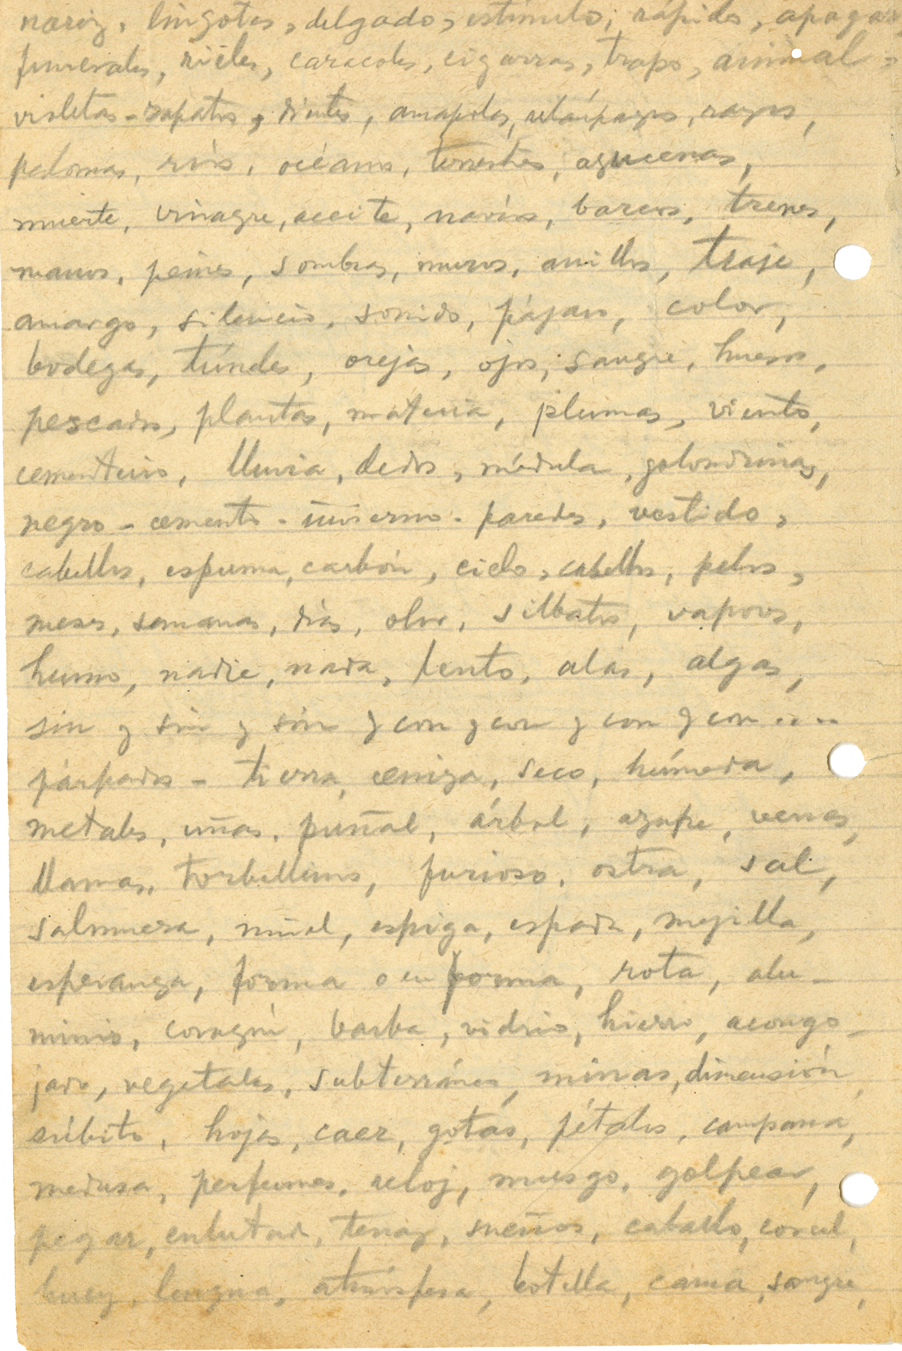 nariz, lingotes, delgado, estímulo, rápido, apagar
funerales, rieles, caracoles, cigarras, trapo, animal,
violetas - zapatos, dientes, amapolas, relámpagos, rayos,
palomas, ríos, océanos, terrestres, azucenas,
muerte, vinagre, aceite, navíos, barcos, trenes,
manos, peines, sombras, muros, anillos, traje,
amargo, silencio, sonido, pájaro, color,
bodegas, túneles, orejas, ojos, sangre, huesos,
pescados, plantas, materia, plumas, viento,
cementerio, lluvia, dedos, médula, golondrinas,
negro - cemento - invierno - paredes, vestido,
cabellos, espuma, carbón, cielo, cabellos, pelos,
meses, semanas, días, olor, silbatos, vapores,
humo, nadie, nada, lento, alas, algas,
sin y sin y sin y con y con y con y con ....
párpados - tierra, ceniza, seco, húmeda,
metales, uñas, puñal, árbol, azufre, venas,
llamas, torbellinos, furioso, ostra, sal,
salmuera, espiga, espada, mejilla,
esperanza, forma o en forma, rota, alu-
minio, corazón, barba, vidrio, hierro, acongo-
jado, vegetales, subterráneo, minas, dimensión,
súbito, hojas, caer, gotas, pétalos, campana,
medusa, perfumes, reloj, musgo, golpear,
pegar, enlutada, tenaz, sueños, caballo, coral,
buey, lengua, atmósfera, botella, cama, sangre,